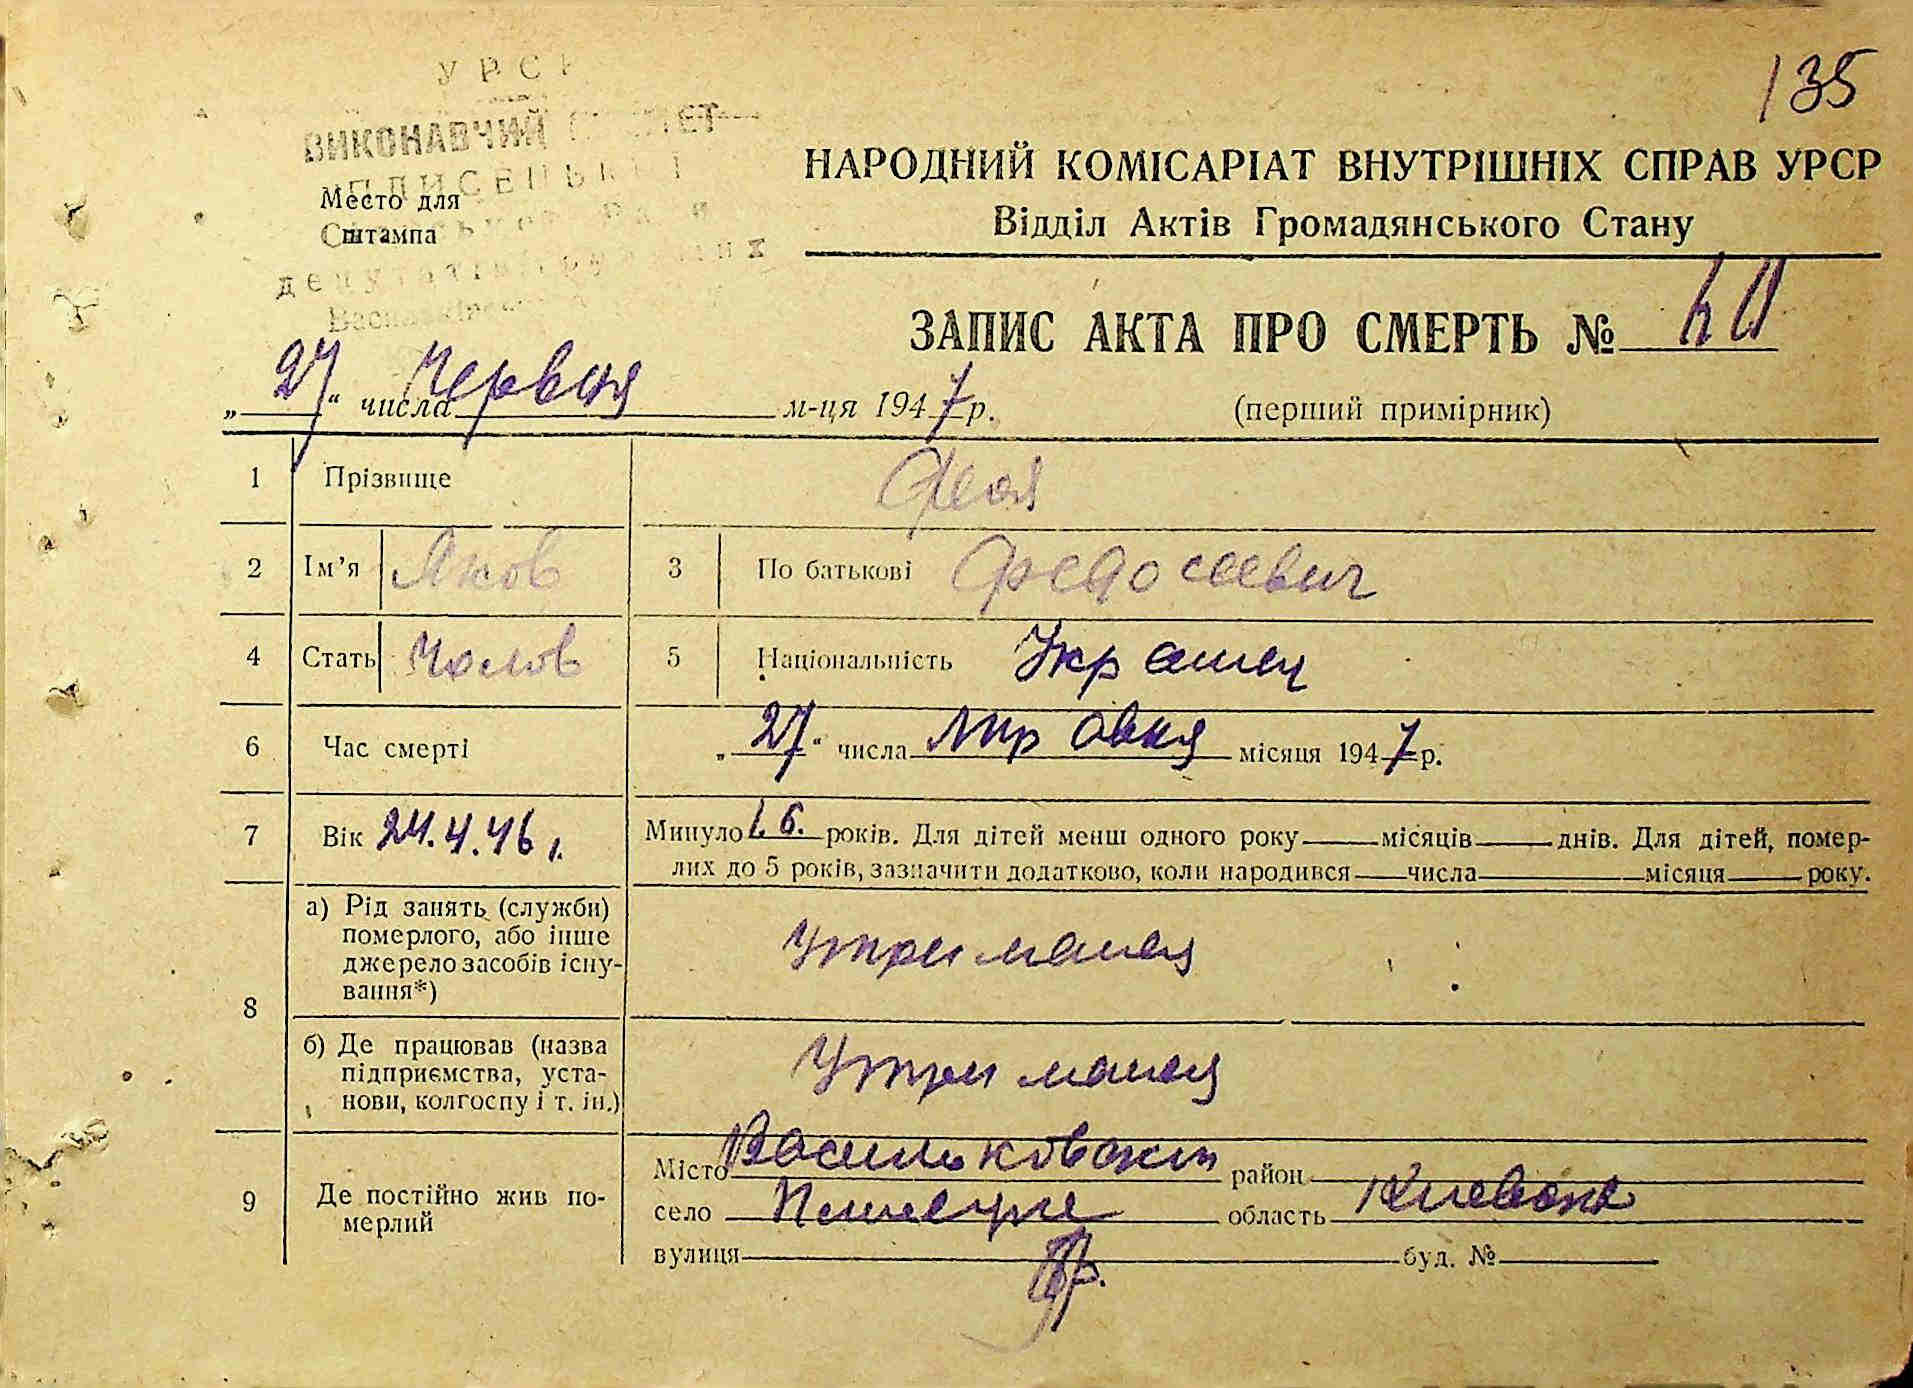 135
УРСР
ВИКОНАВЧИЙ КОМІТЕТ
ПЛИСЕЦЬКОЇ
депутатів трудящих
Место для
штампа
НАРОДНИЙ КОМІСАРІАТ ВНУТРІШНІХ СПРАВ УРСР
Відділ Актів Громадянського Стану
ЗАПИС АКТА ПРО СМЕРТЬ №
„27“ числа Червня м-ця 1947 р. (перший примірник)
1 Прізвище
2 Ім’я Яков 3 По батькові Федосеевич
4 Стать Чолов 5 Національність Украинец
6 Час смерті „27“ числа місяця 1947 р.
7 Вік 24.4.46 г. Минуло 1.6. років. Для дітей менш одного року місяців днів. Для дітей, помер-
лих до 5 років, зазначити додатково, коли народився числа місяця року.
8 а) Рід занять (служби)
померлого, або інше
джерело засобів існу-
вання*)
Утриманец
б) Де працював (назва
підприємства, уста-
нови, колгоспу і т. ін.)
Утриманец
9 Де постійно жив по-
мерлий
Місто Васильковский район
село область Киевська
вулиця буд. №